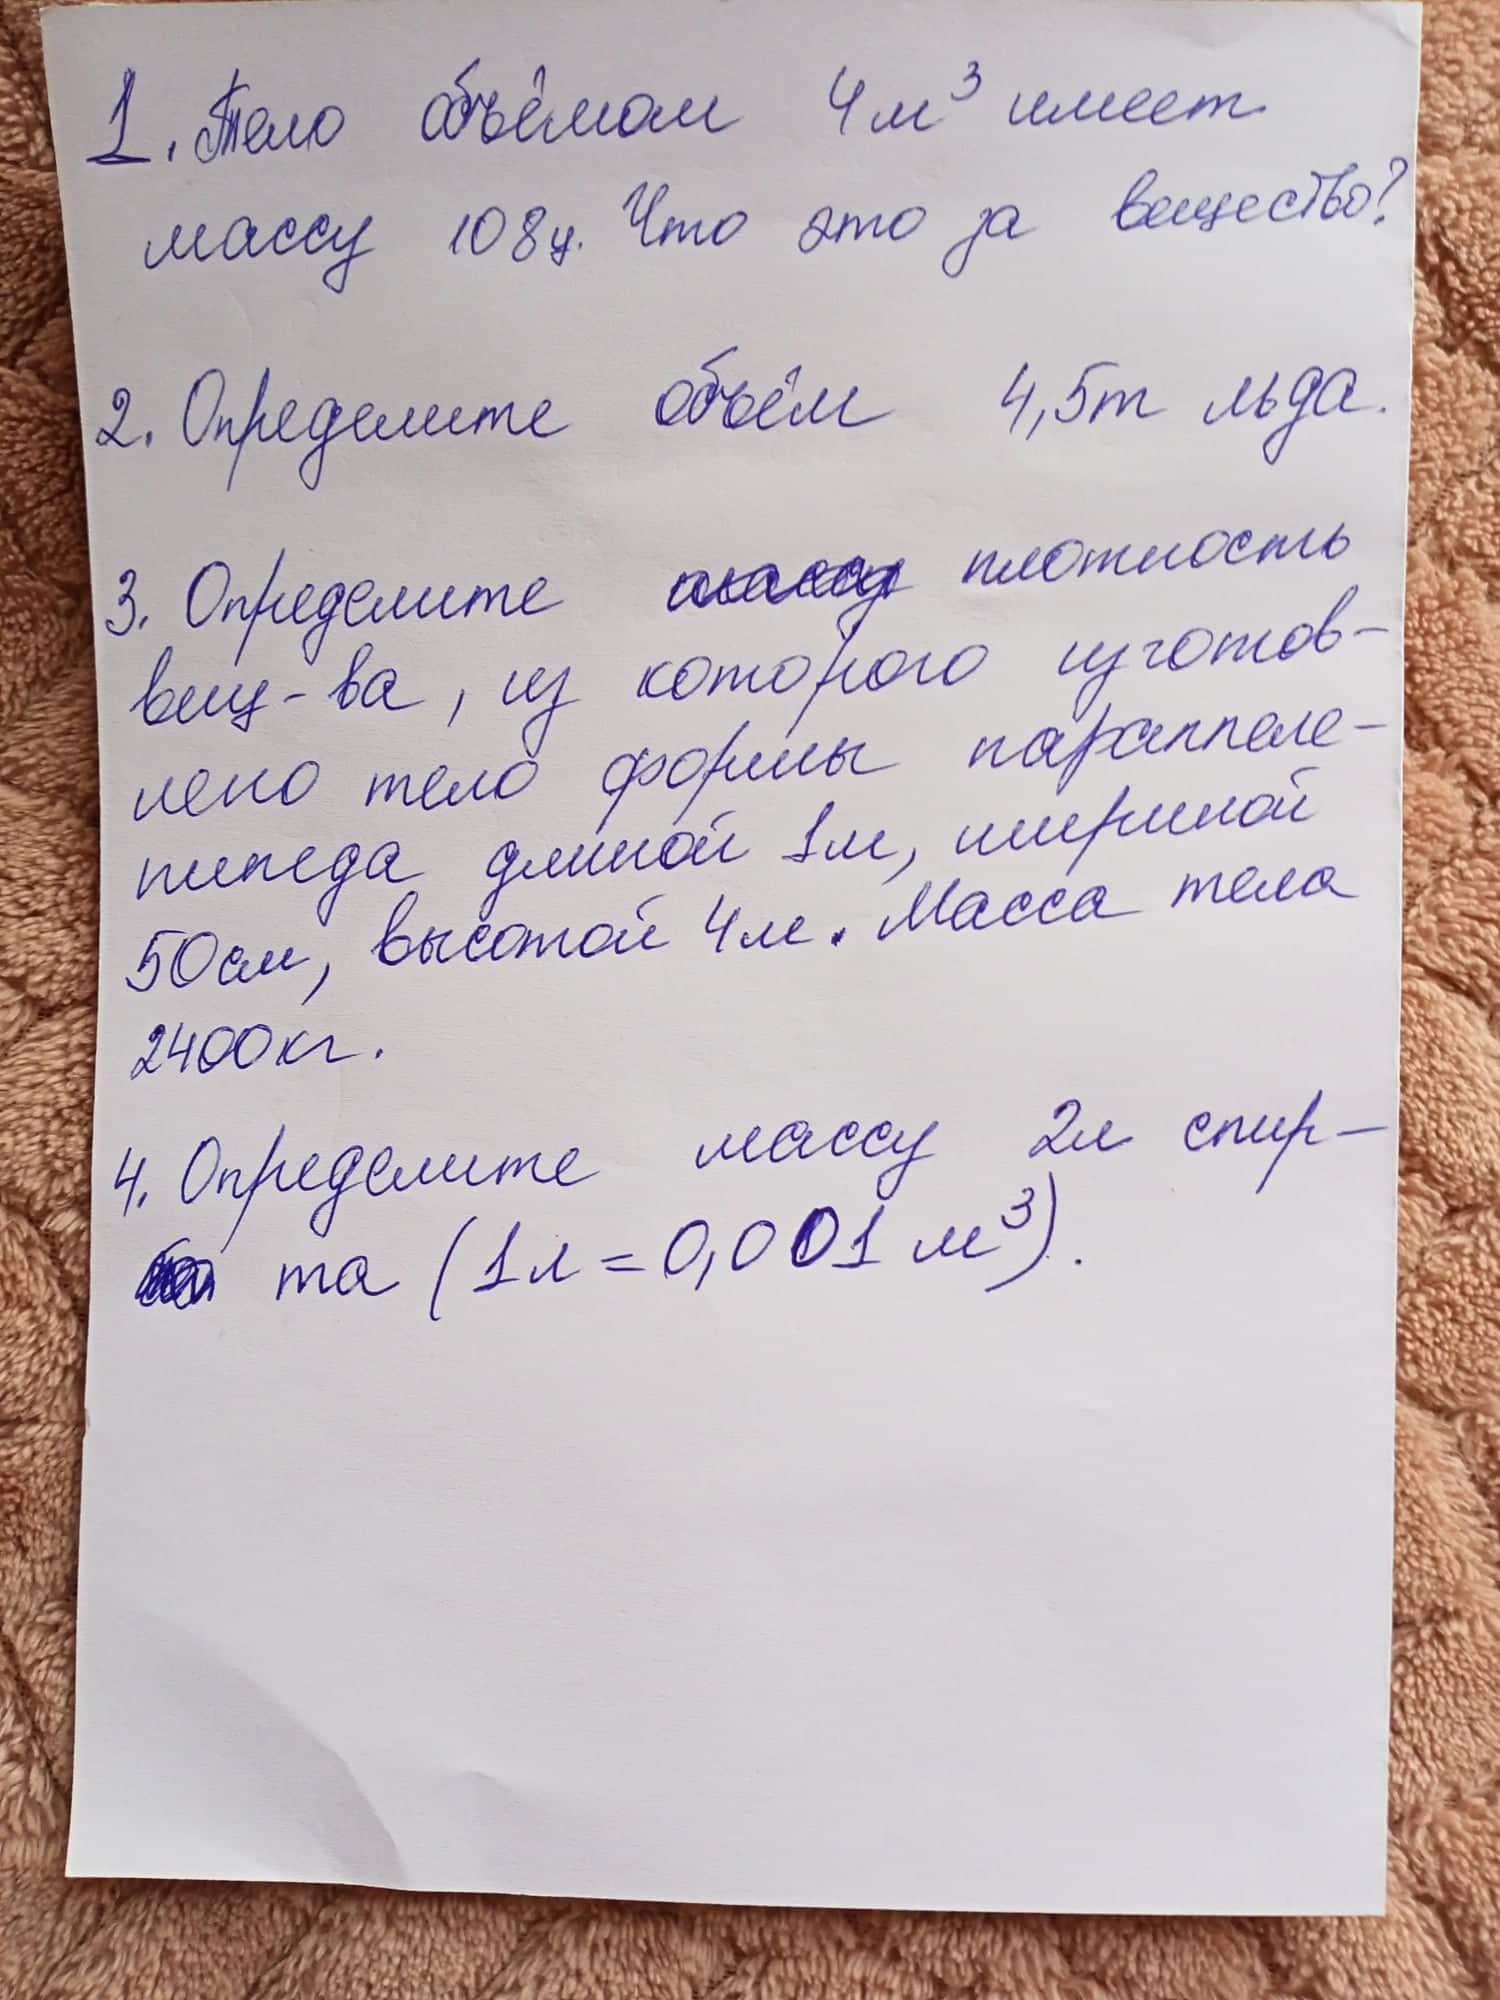 1. Тело объёмом 4м³ имеет
массу 108ц. Что это за вещество?
2. Определите объём 4,5т льда.
3. Определите массу плотность
вещ-ва, из которого изготов-
лено тело формы параллеле-
пипеда длиной 1м, шириной
50см, высотой 4м. Масса тела
2400кг.
4. Определите массу 2л спир-
та (1л = 0,001 м³).